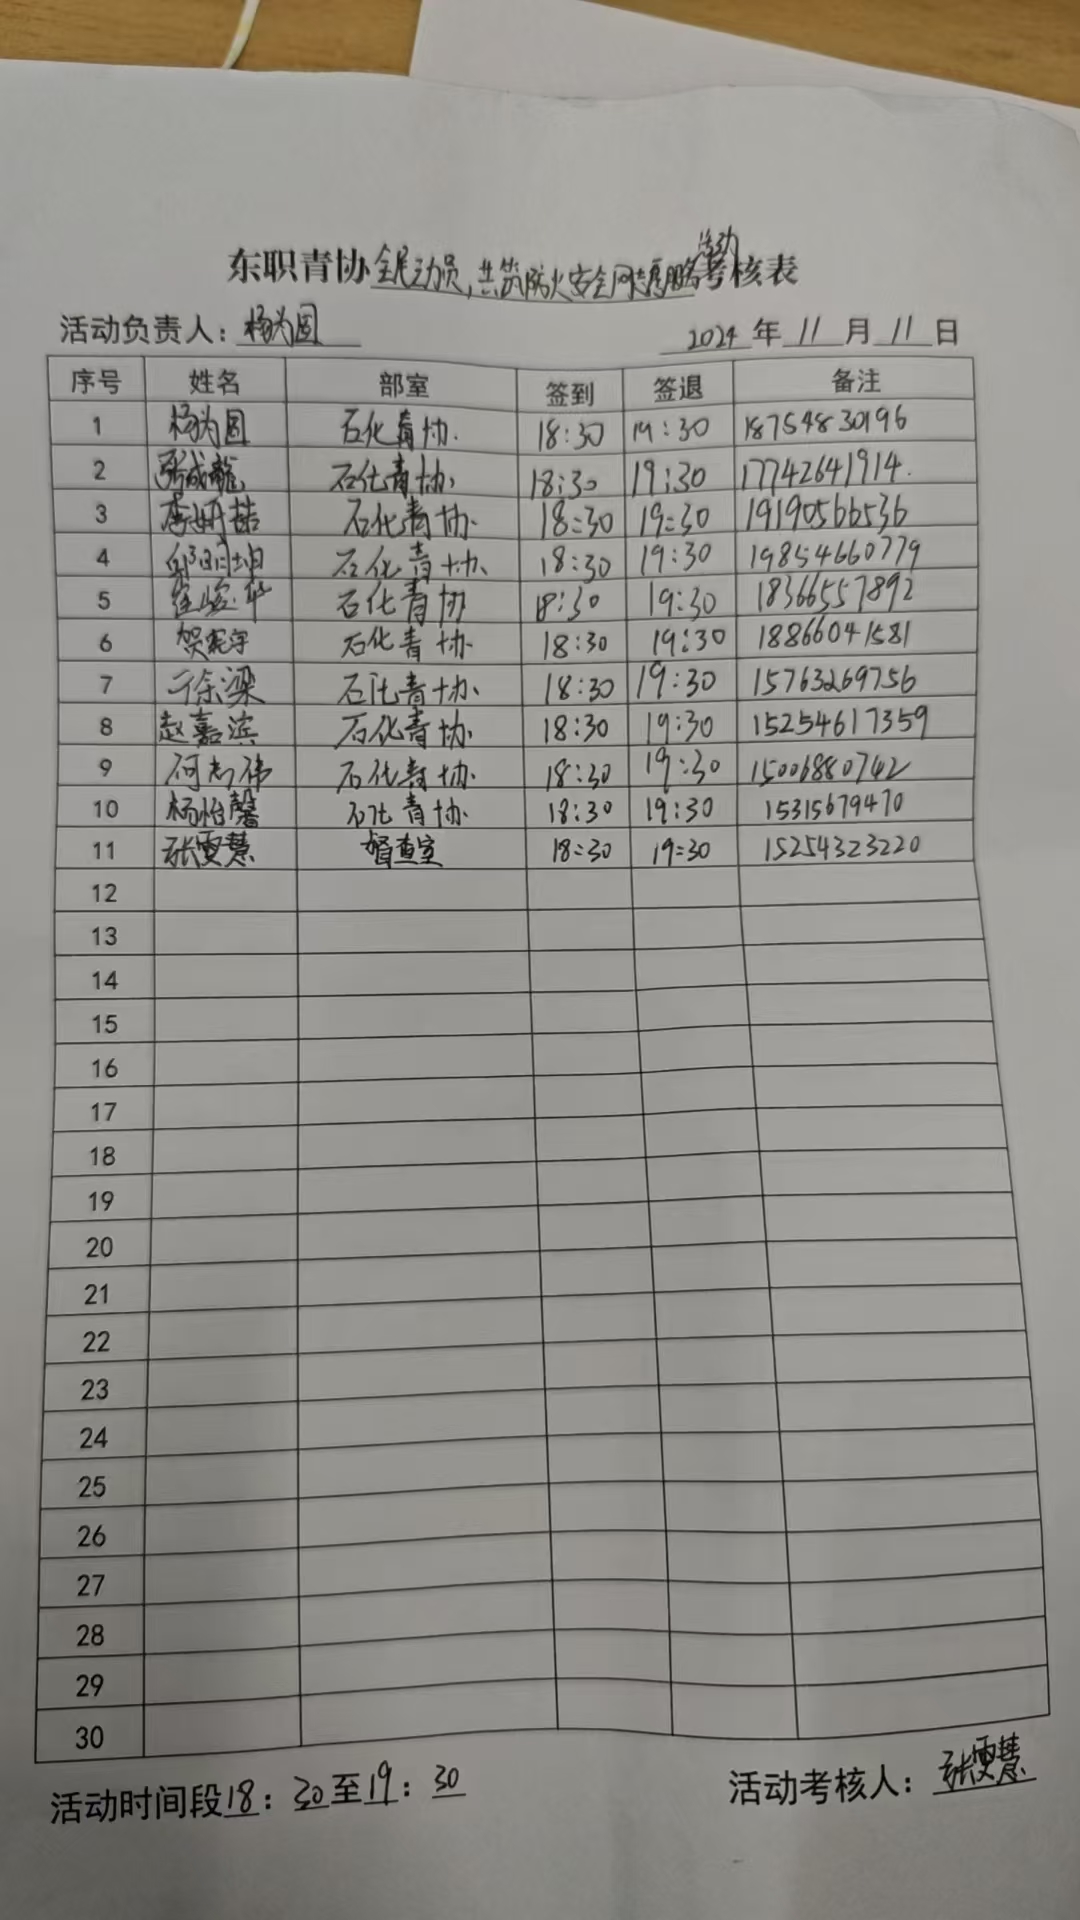 活动
东职青协全民动员，共筑防火安全网志愿服务考核表
活动负责人：杨为圆 2024年11月11日
序号 姓名 部室 签到 签退 备注
1 杨为圆 石化青协. 18:30 19:30 18754830196
2 张成龍 石化青协. 18:30 19:30 17742641914.
3 李妍喆 石化青协. 18:30 19:30 19190566536
4 石化青协. 18:30 19:30 19854660779
5 石化青协 18:30 19:30 18366557892
6 石化青协. 18:30 19:30 18866041581
7 于徐梁 石化青协. 18:30 19:30 15763269756
8 赵嘉滨 石化青协. 18:30 19:30 15254617359
9 何志伟 石化青协. 18:30 19:30 15006880742
10 杨怡馨 石化青协. 18:30 19:30 15315679470
11 张雯慧 督查室 18:30 19:30 15254323220
12
13
14
15
16
17
18
19
20
21
22
23
24
25
26
27
28
29
30
活动时间段18：30至19：30 活动考核人：张雯慧